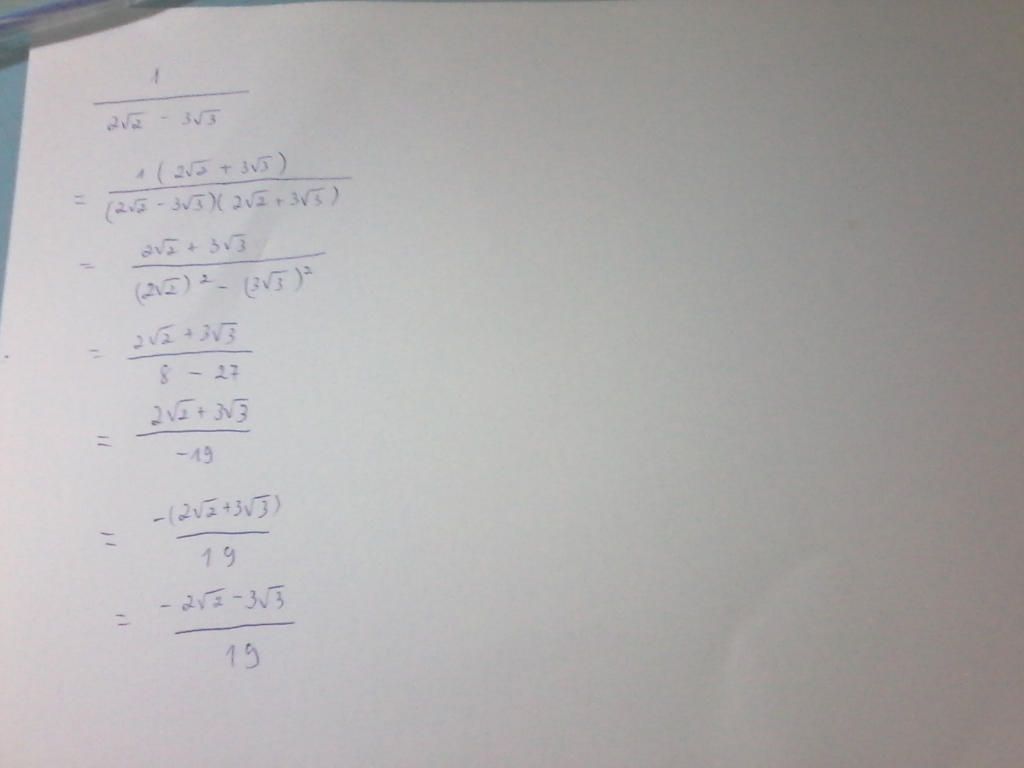 1
2√2 - 3√3
1 ( 2√2 + 3√3 )
= (2√2 - 3√3)( 2√2 + 3√3 )
2√2 + 3√3
= (2√2)² - (3√3)²
2√2 + 3√3
= 8 - 27
2√2 + 3√3
= -19
-(2√2+3√3)
= 19
- 2√2 - 3√3
= 19